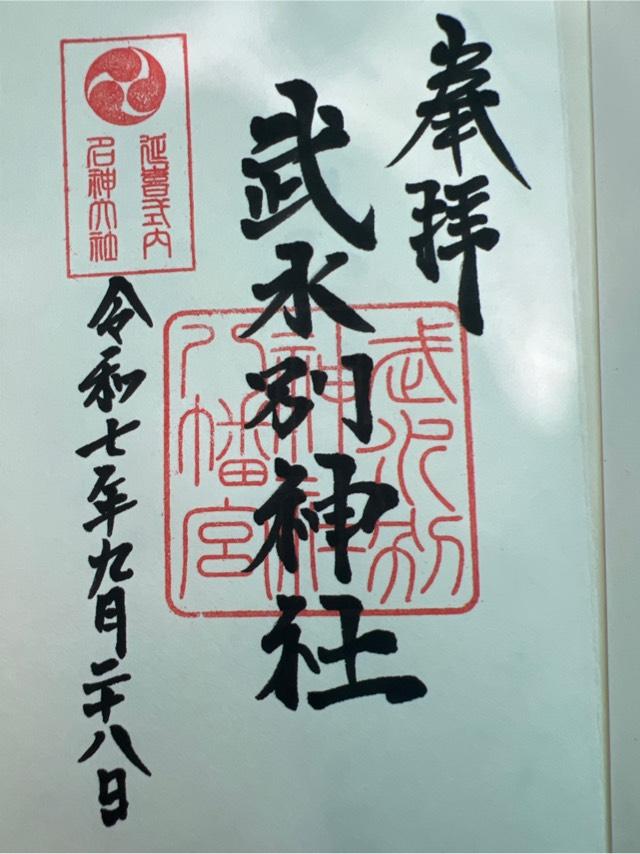 奉拝
武水別神社
武水別
神社
八幡宮
延喜式内
名神大社
令和七年九月二十八日